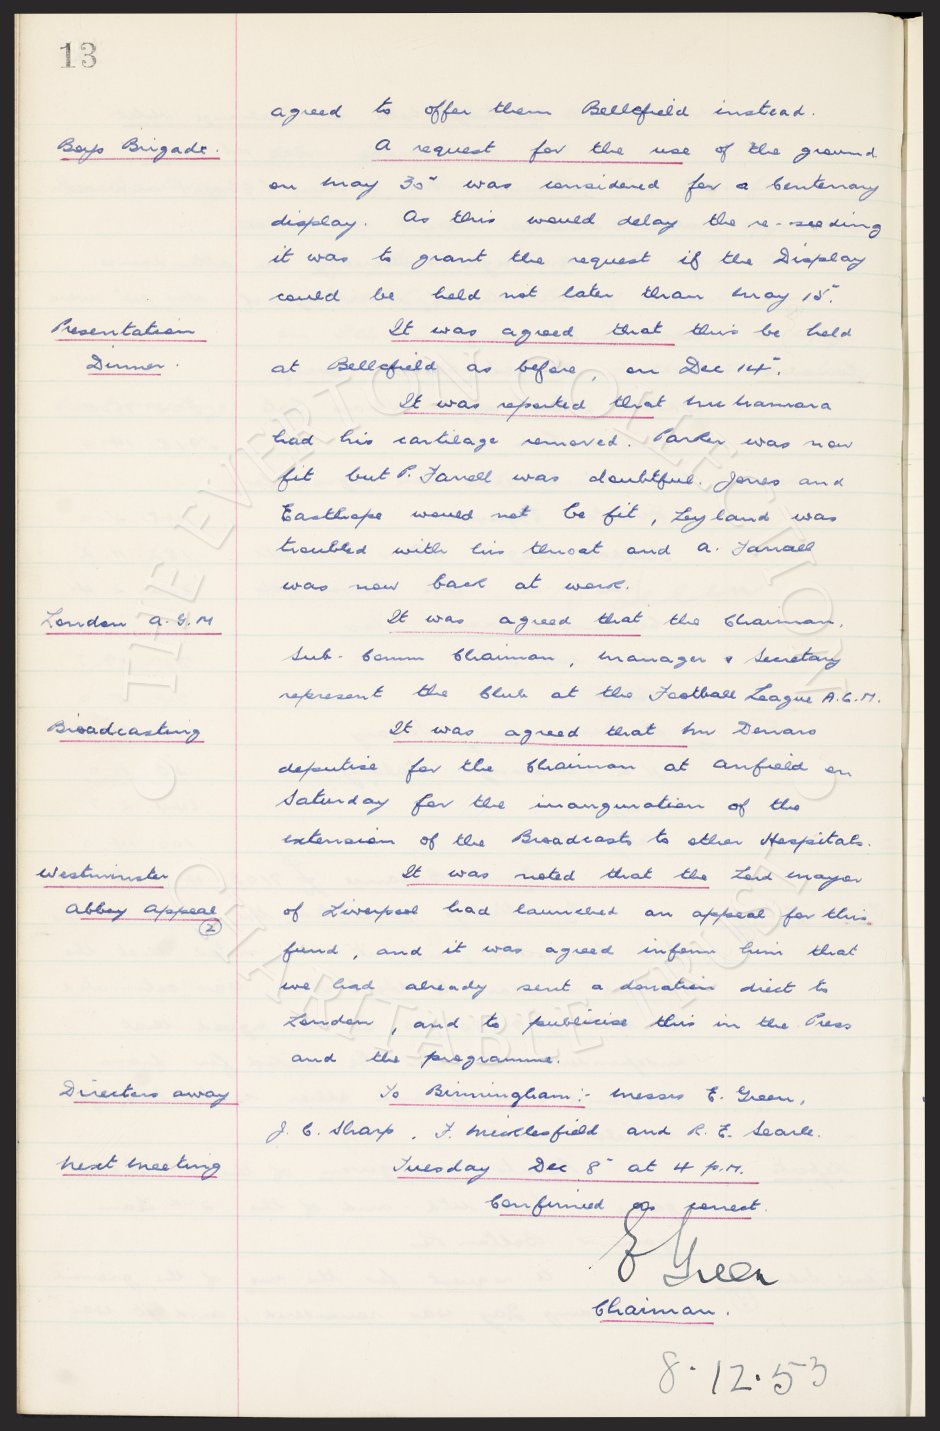 13
agreed to offer them Bellefield instead.
Boys Brigade. A request for the use of the ground
on May 30" was considered for a Centenary
display. As this would delay the re-seeding
it was to grant the request if the Display
could be held not later than May 15".
Presentation It was agreed that this be held
Dinner. at Bellefield as before, on Dec 14".
It was reported that McNamara
had his cartilage removed. Parker was now
fit but P. Farrell was doubtful. Jones and
Easthope would not be fit, Leyland was
troubled with his throat and A. Farrall
was now back at work.
London A.G.M It was agreed that the Chairman,
Sub-Comm Chairman, Manager & Secretary
represent the Club at the Football League A.G.M.
Broadcasting It was agreed that Mr Denaro
deputise for the Chairman at Anfield on
Saturday for the inauguration of the
extension of the Broadcasts to other Hospitals.
Westminster It was noted that the Lord Mayor
Abbey Appeal of Liverpool had launched an appeal for this
(2)
fund, and it was agreed inform him that
we had already sent a donation direct to
London, and to publicise this in the Press
and the programme.
Directors away To Birmingham:- Messrs E. Green,
J. C. Sharp, F. Micklesfield and R. E. Searle.
Next Meeting Tuesday Dec 8" at 4 p.m.
Confirmed as correct.
E Green
Chairman.
8.12.53
© THE EVERTON COLLECTION
CHARITABLE TRUST